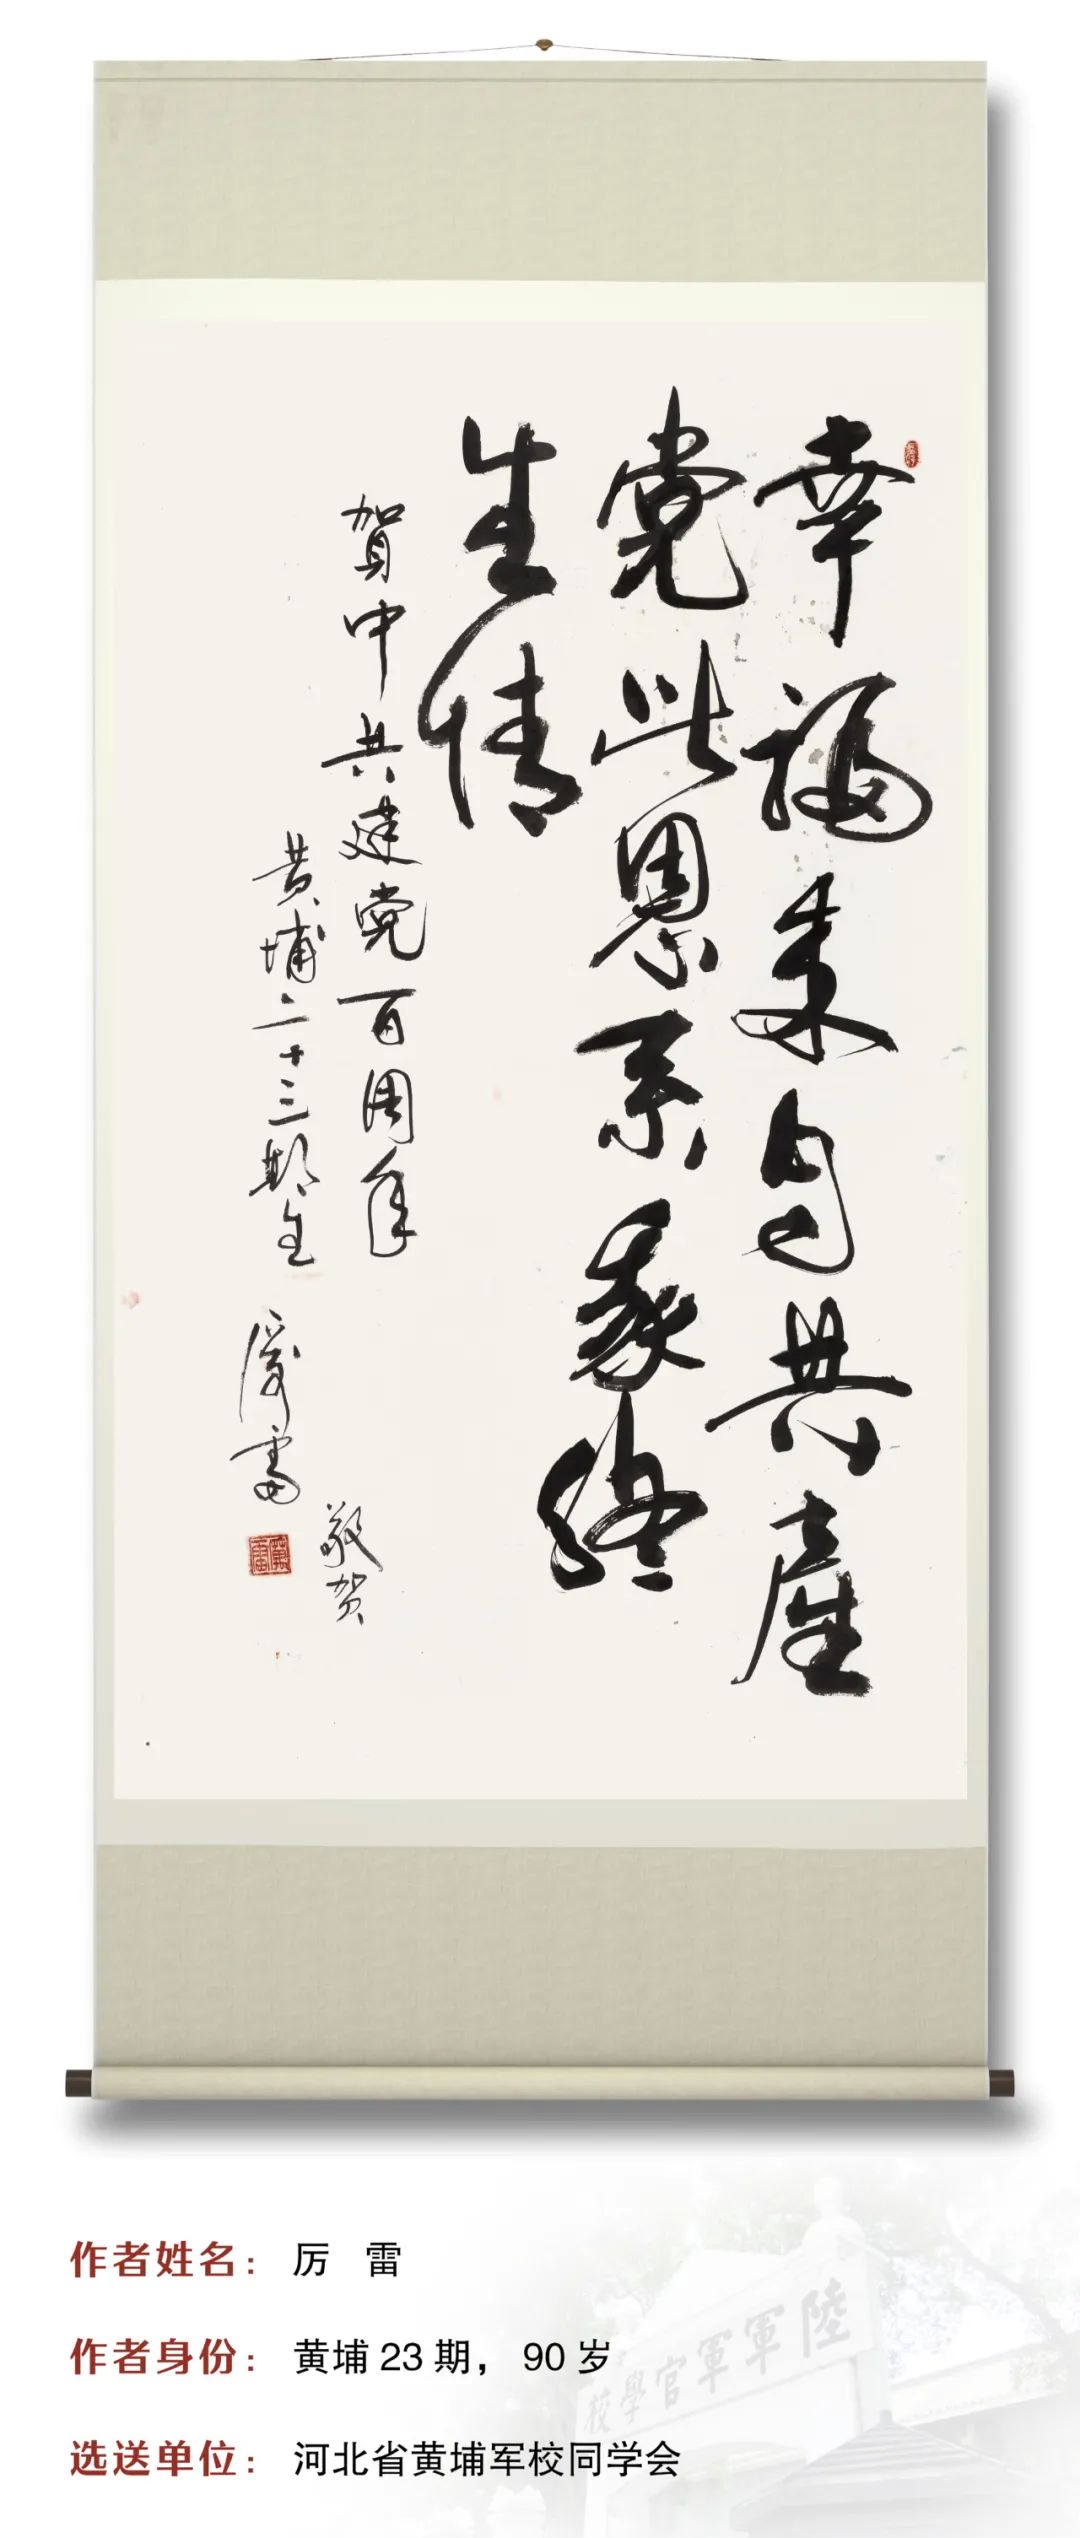 幸福来自共產
党此恩系我终
生情
賀中共建党百周年
黄埔二十三期生 厲雷
敬贺
作者姓名：厉 雷
作者身份：黄埔 23 期，90 岁
选送单位：河北省黄埔军校同学会
陸軍軍官學校